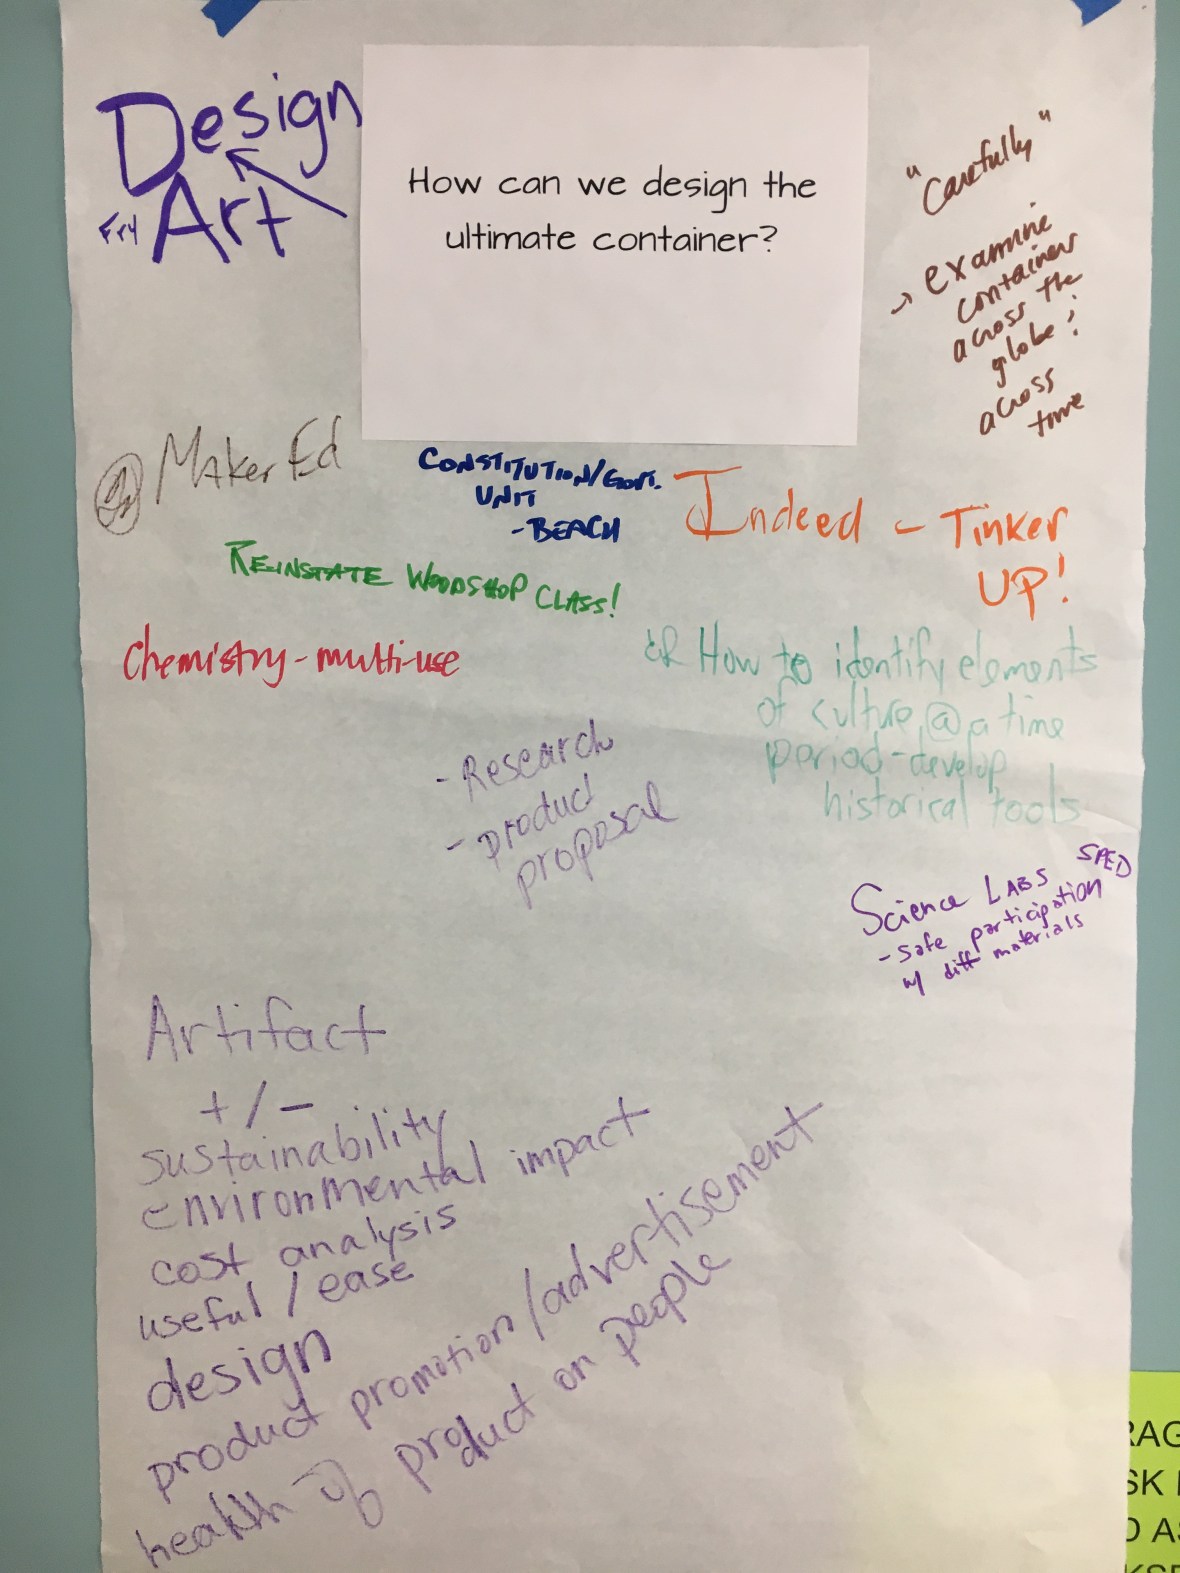 Design
Fry Art
How can we design the
ultimate container?
"Carefully"
→ examine
containers
across the
globe;
across
time
Maker Ed
CONSTITUTION/GOVT.
UNIT
-BEACH
Indeed - Tinker
UP!
REINSTATE WOODSHOP CLASS!
Chemistry-multi-use
How to identify elements
of culture @ a time
period-develop
historical tools
- Research
- product
proposal
Science LABS SPED
- safe participation
w/ diff materials
Artifact
+/-
sustainability
environmental impact
cost analysis
useful/ease
design
product promotion/advertisement
health of product on people
RAG
SK